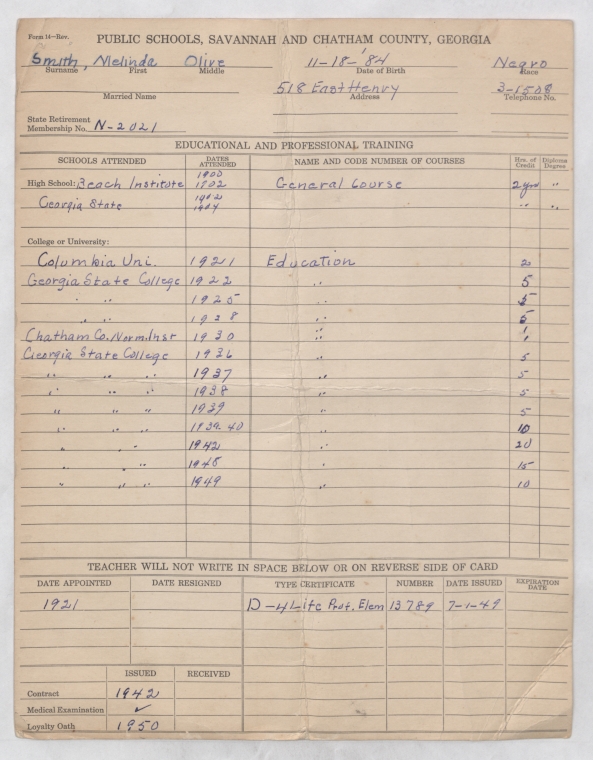 Form 14—Rev. PUBLIC SCHOOLS, SAVANNAH AND CHATHAM COUNTY, GEORGIA
Smith, Melinda Olive 11-18-'84 Negro
Surname First Middle Date of Birth Race
518 East Henry 3-1508
Married Name Address Telephone No.
State Retirement
Membership No. N-2021
EDUCATIONAL AND PROFESSIONAL TRAINING
SCHOOLS ATTENDED DATES ATTENDED NAME AND CODE NUMBER OF COURSES Hrs. of Credit Diploma Degree
High School: Beach Institute 1900 1902 General Course 2 yrs "
Georgia State 1902 1904 " "
College or University:
Columbia Uni. 1921 Education 2
Georgia State College 1922 " 5
" " 1925 " 5
" " 1928 " 5
Chatham Co. Norm. Inst 1930 " "
Georgia State College 1936 " 5
" " " 1937 " 5
" " " 1938 " 5
" " " 1939 " 5
" " " 1939-40 " 10
" " " 1942 " 20
" " " 1945 " 15
" " " 1949 " 10
TEACHER WILL NOT WRITE IN SPACE BELOW OR ON REVERSE SIDE OF CARD
DATE APPOINTED DATE RESIGNED TYPE CERTIFICATE NUMBER DATE ISSUED EXPIRATION DATE
1921 D-4 Life Prof. Elem 13789 7-1-49
ISSUED RECEIVED
Contract 1942
Medical Examination ✓
Loyalty Oath 1950